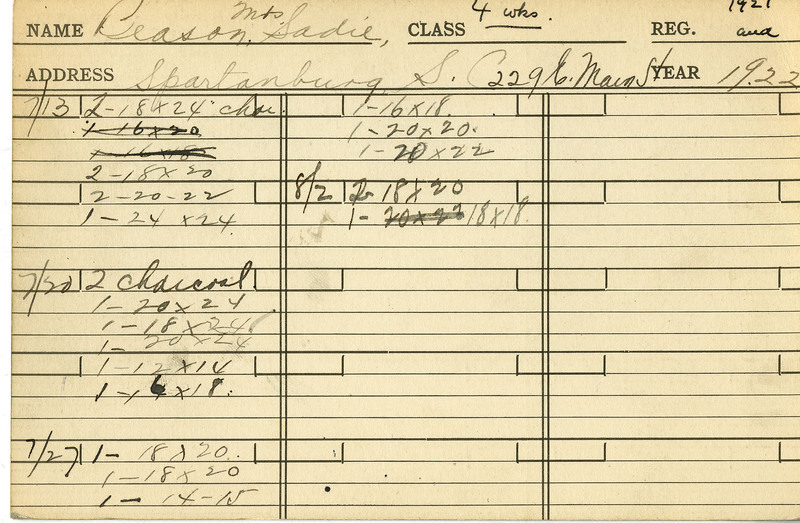 NAME Ceason, Mrs. Sadie, CLASS 4 wks. REG. 1921 and
ADDRESS Spartanburg, S. C. 229 E. Main St YEAR 1922
7/13 2-18x24 char.
1-16x20
1-16x18
2-18x20
2-20-22
1-24x24
7/20 2 charcoal.
1-20x24
1-18x24
1-20x24
1-12x14
1-16x18.
7/27 1-18x20.
1-18x20
1-14-15
1-16x18.
1-20x20.
1-20x22
8/2 2-18x20
1-20x22 18x18.